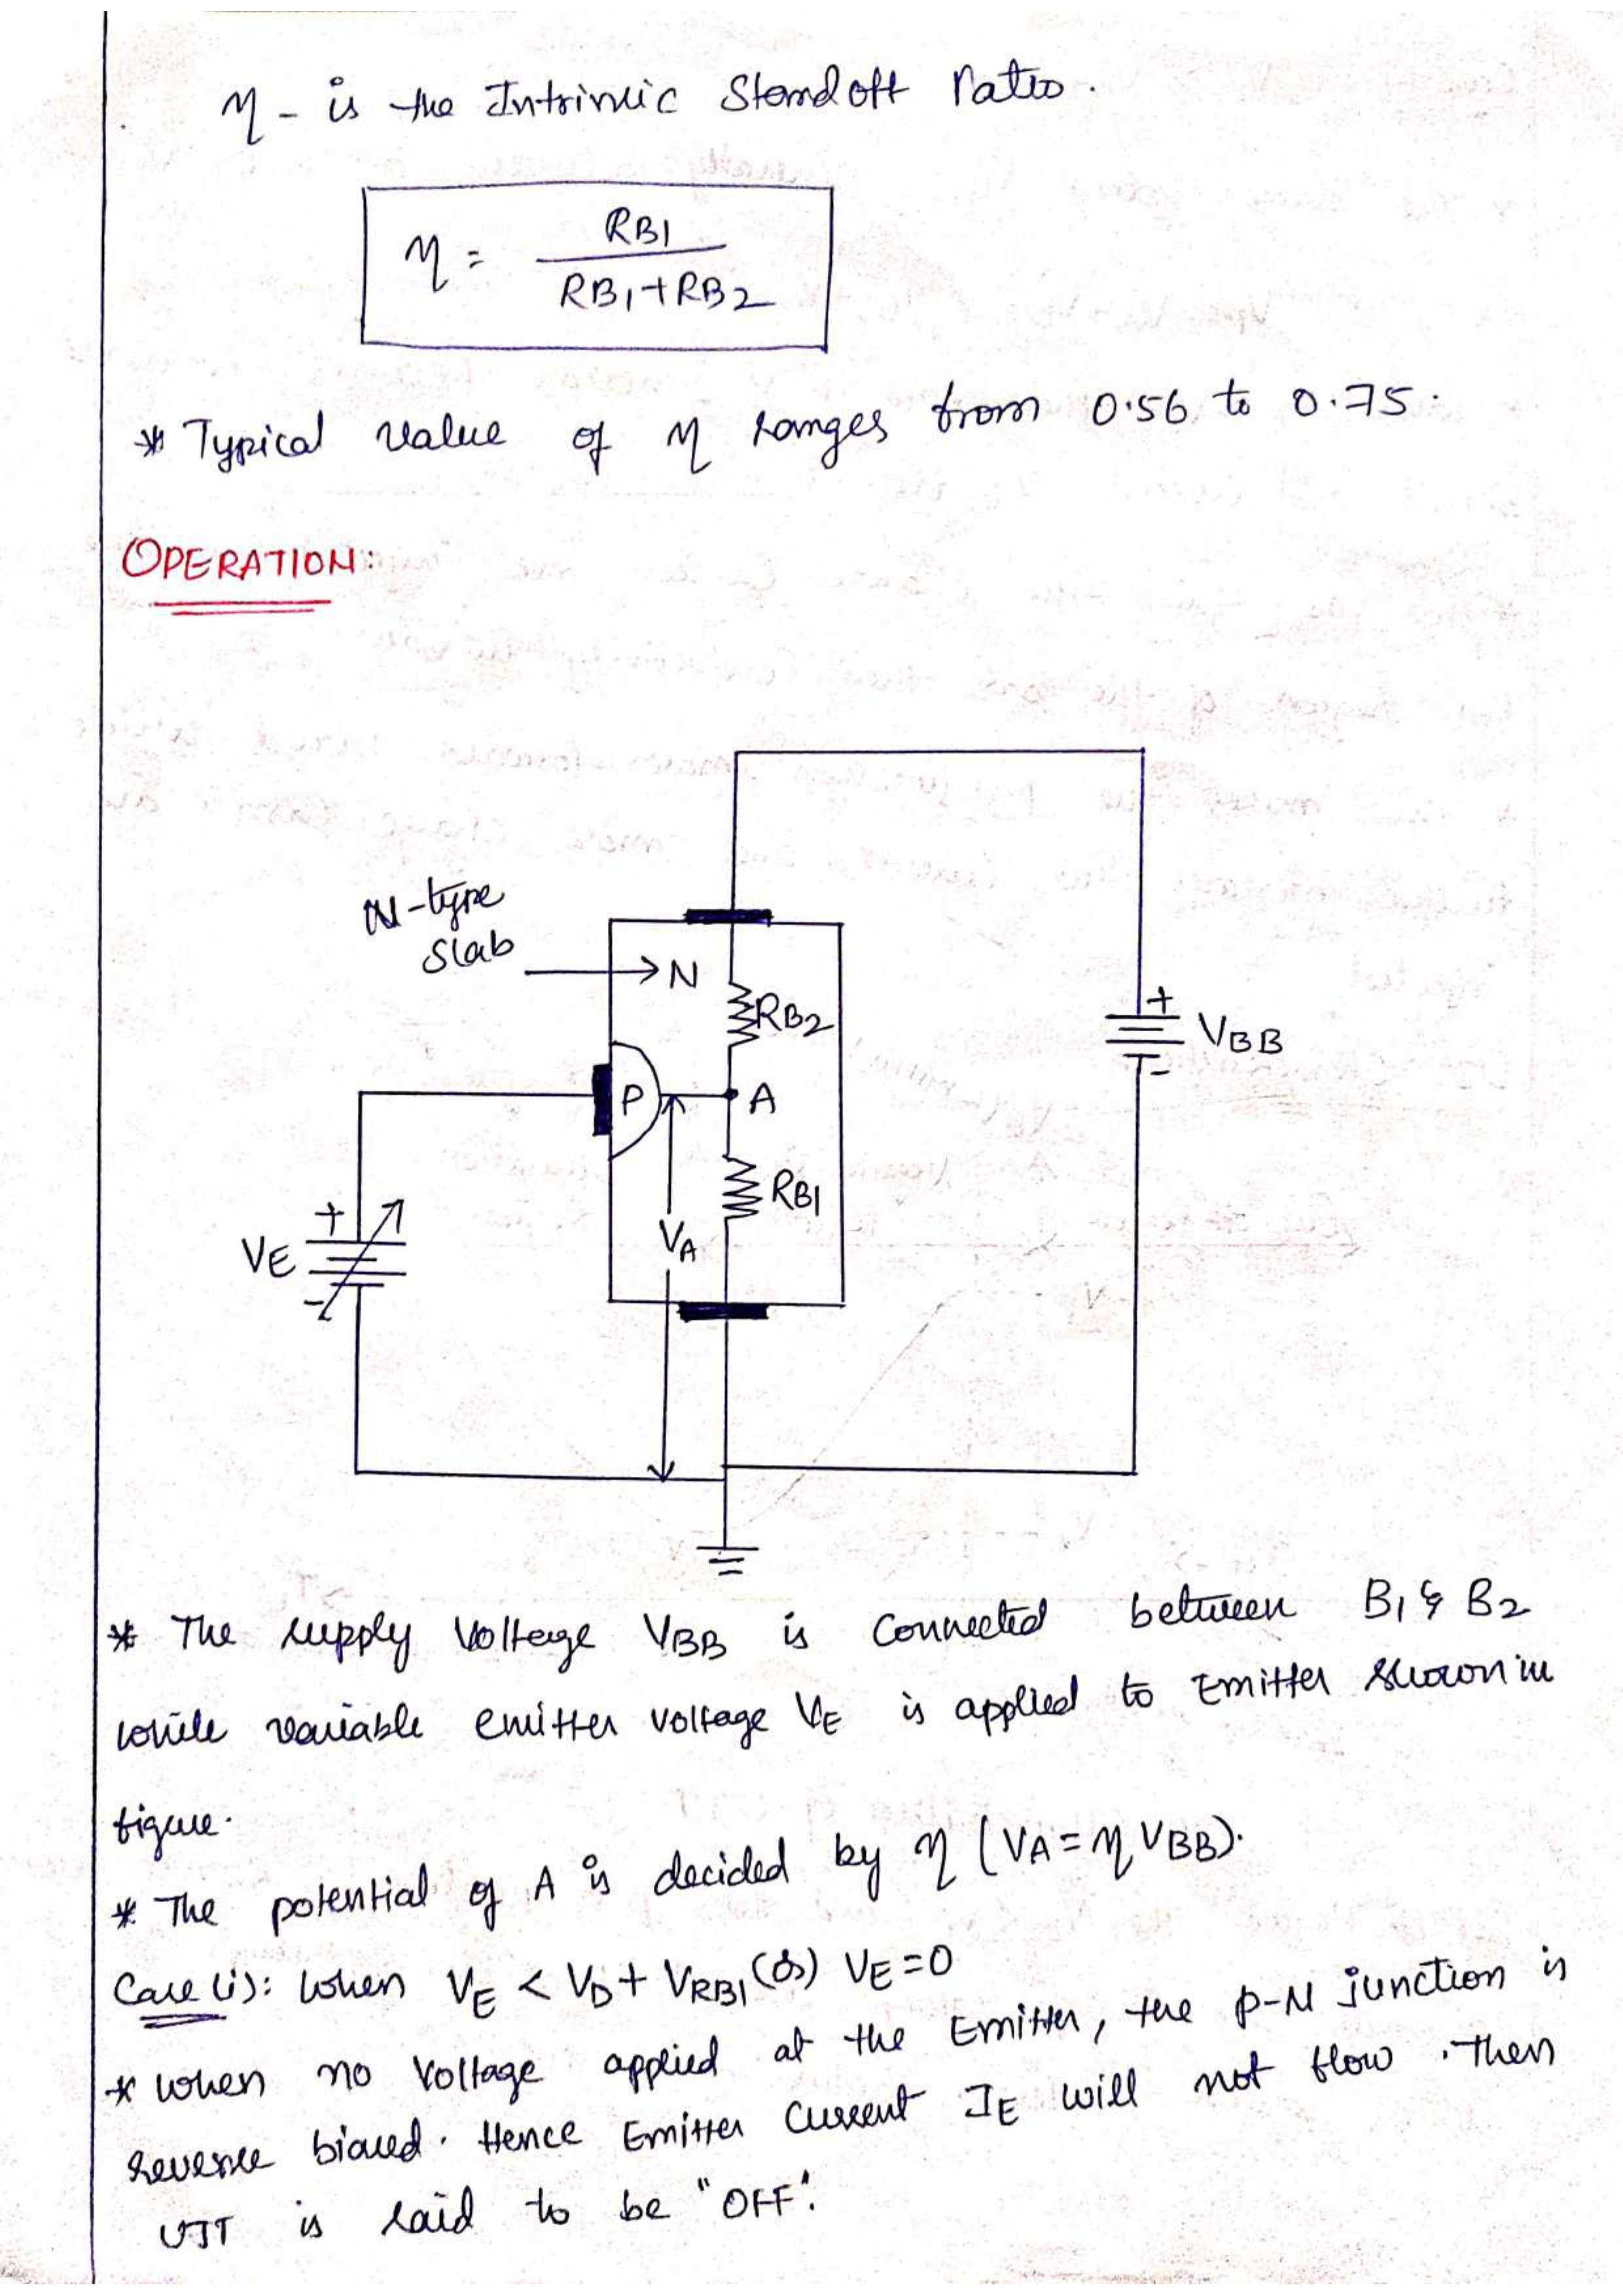 η - is the Intrinsic Standoff Ratio.
η = RB1 / RB1+RB2
* Typical value of η ranges from 0.56 to 0.75.
OPERATION:
N-type
Slab
N
RB2
VBB
+
-
P
A
RB1
VA
+
VE
-
* The supply Voltage VBB is Connected between B1 & B2
while variable emitter voltage VE is applied to Emitter shown in
figure.
* The potential of A is decided by η (VA = η VBB).
Case (i): When VE < VD + VRB1 (or) VE = 0
* When no Voltage applied at the Emitter, the P-N junction is
reverse biased. Hence Emitter Current IE will not flow. Then
UJT is said to be "OFF".